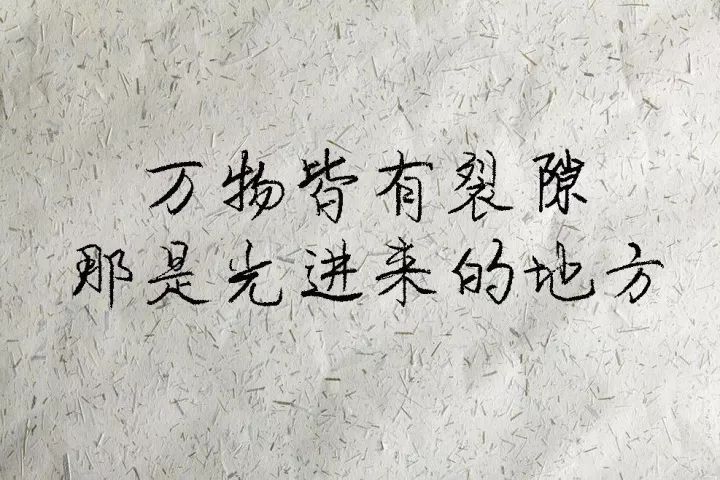 万物皆有裂隙
那是光进来的地方